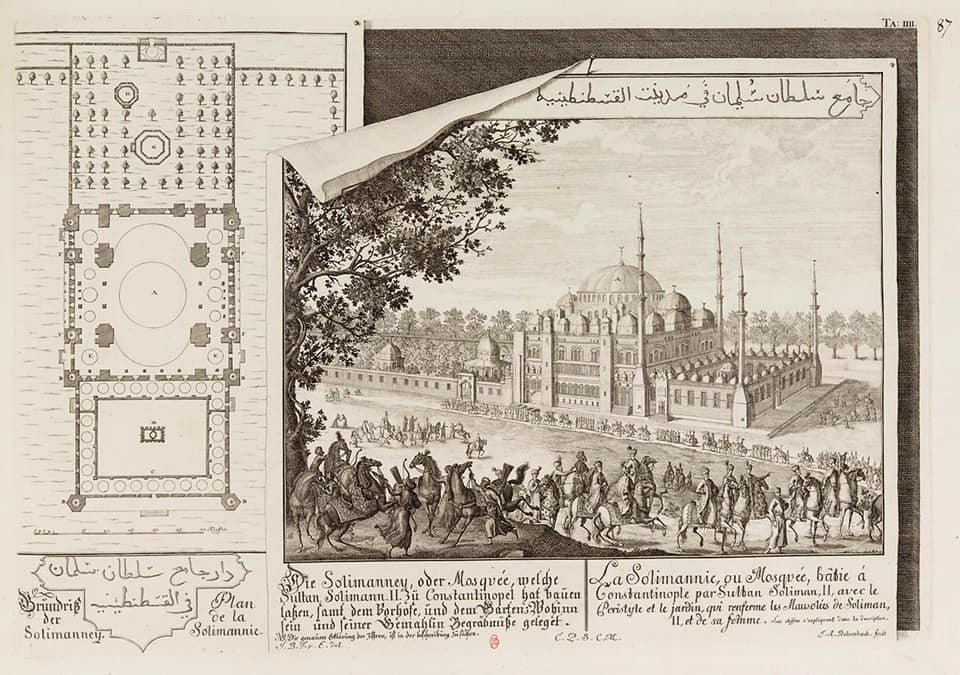 TA: IIII.
87
جامع سلطان سليمان في مدينت القسطنطينيه
A
B
C
دار جامع سلطان سلمان
في القسطنطينيه
Grundriß
der
Solimanney.
Plan
de la
Solimannie.
Die Solimanney, oder Mosqvée, welche
Sultan Solimann. II. zu Constantinopel hat bauen
laßen, samt dem Vorhofe, und dem Garten, Wohinn
sein und seiner Gemahlin Begräbnüße geleget.
I. B. F. v. E. del.
C. P. S. C. M.
La Solimannie, ou Mosqvée, bâtie á
Constantinople par Sultan Soliman, II, avec le
Peristyle et le jardin, qui renferme les Mausolés de Soliman,
II, et de sa femme. Les chifres s'expliquent dans la description.
I. A. Delsenbach. fecit